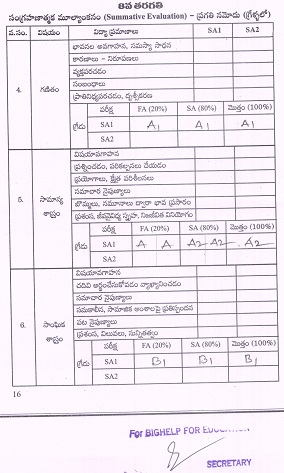 8వ తరగతి
సంగ్రహణాత్మక మూల్యాంకనం (Summative Evaluation) - ప్రగతి నమోదు (గ్రేడ్లలో)
వ.సం. విషయం విద్యా ప్రమాణాలు SA1 SA2
భావనల అవగాహన, సమస్యా సాధన
కారణాలు - నిరూపణలు
వ్యక్తపరచడం
సంబంధాలు
ప్రాతినిధ్యపరచడం, దృశ్యీకరణ
4. గణితం
పరీక్ష FA (20%) SA (80%) మొత్తం (100%)
గ్రేడు SA1 A1 A1 A1
SA2
విషయావగాహన
ప్రశ్నించడం, పరికల్పనలు చేయడం
ప్రయోగాలు, క్షేత్ర పరిశీలనలు
సమాచార నైపుణ్యాలు
బొమ్మలు, నమూనాల ద్వారా భావ ప్రసారం
ప్రశంస, జీవవైవిధ్య స్పృహ, నిజజీవిత వినియోగం
5. సామాన్య శాస్త్రం
పరీక్ష FA (20%) SA (80%) మొత్తం (100%)
గ్రేడు SA1 A A A2 A2 A2
SA2
విషయావగాహన
చదివి అర్థంచేసుకోవడం వ్యాఖ్యానించడం
సమాచార నైపుణ్యాలు
సమకాలీన, సామాజిక అంశాలపై ప్రతిస్పందన
పట నైపుణ్యాలు
ప్రశంస, విలువలు, సున్నితత్వం
6. సాంఘిక శాస్త్రం
పరీక్ష FA (20%) SA (80%) మొత్తం (100%)
గ్రేడు SA1 B1 B1 B1
SA2
16
For BIGHELP FOR EDUCATION
SECRETARY